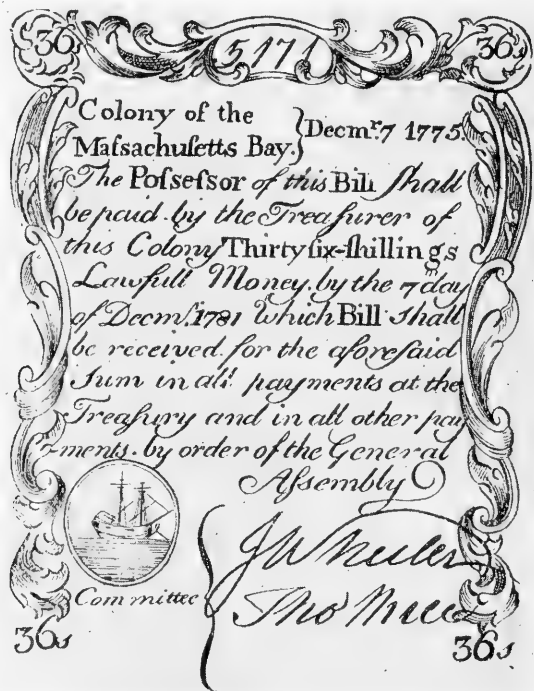 36s 5171 36s
Colony of the
Maſsachuſetts Bay. } Decmr. 7 1775.
The Poſseſsor of this Bill ſhall
be paid by the Treaſurer of
this Colony Thirty ſix-ſhillings
Lawfull Money. by the 7 day
of Decmr. 1781 Which Bill ſhall
be received for the aforeſaid
Sum in all payments at the
Treaſury and in all other pay
-ments. by order of the General
Aſsembly
J Wheeler
Committee Tho
36s 36s